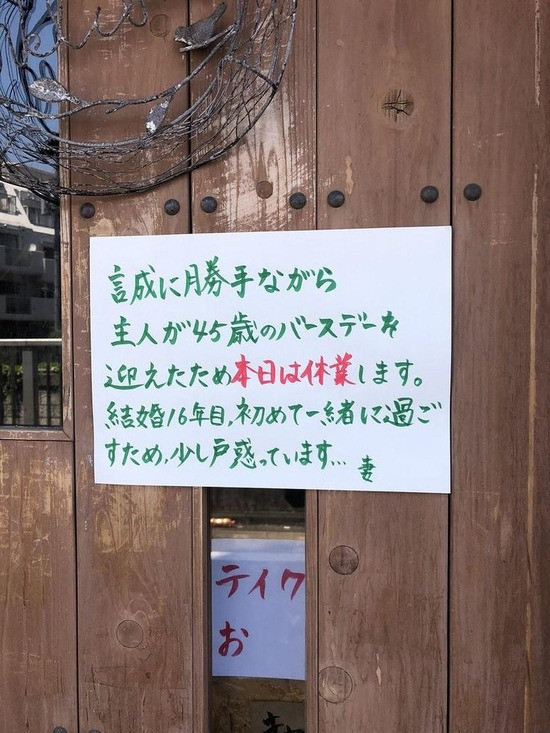 誠に勝手ながら
主人が45歳のバースデーを
迎えたため本日は休業します。
結婚16年目,初めて一緒に過ご
すため,少し戸惑っています...妻
テイク
お